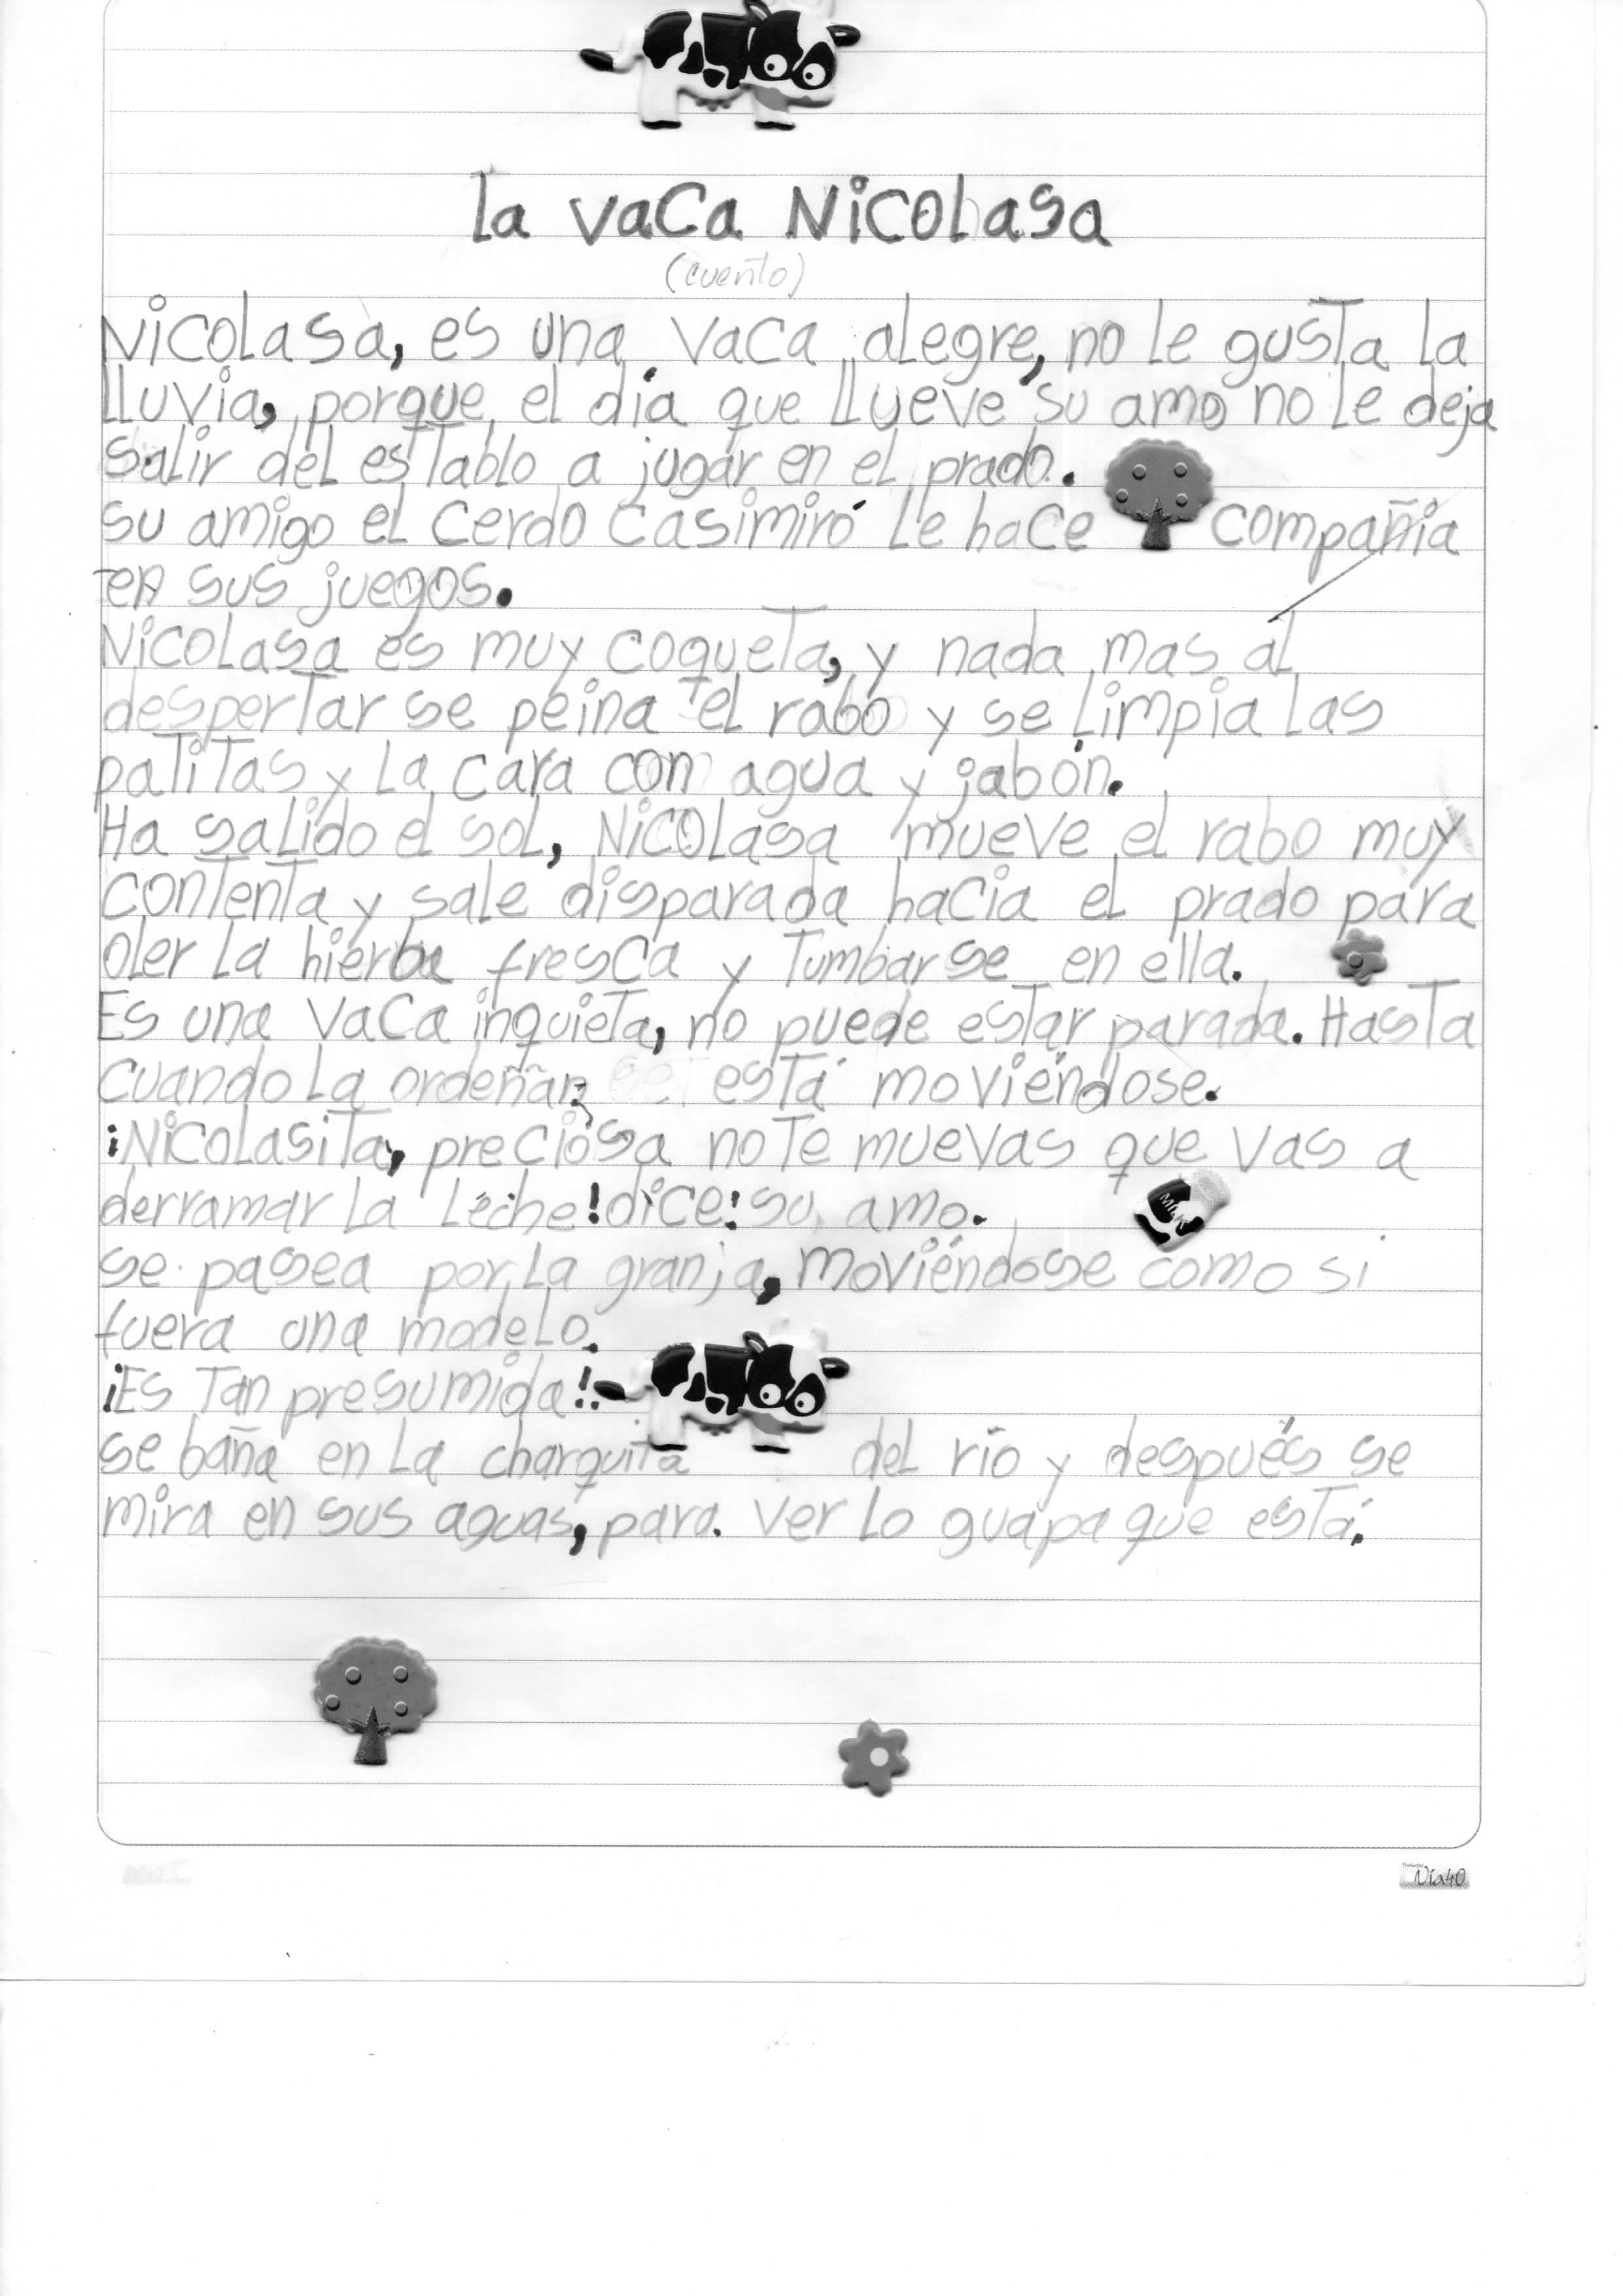 la vaca Nicolasa
(cuento)
Nicolasa, es una vaca alegre, no le gusta la
lluvia, porque el día que llueve su amo no le deja
salir del establo a jugar en el prado.
su amigo el cerdo casimiro le hace compañia
en sus juegos.
Nicolasa es muy coqueta, y nada mas al
despertar se peina el rabo y se limpia las
patitas y la cara con agua y jabón.
Ha salido el sol, Nicolasa mueve el rabo muy
contenta y sale disparada hacia el prado para
oler la hierba fresca y tumbarse en ella.
Es una vaca inquieta, no puede estar parada. Hasta
cuando la ordeñan está moviéndose.
¡Nicolasita, preciosa no te muevas que vas a
derramar la leche! dice: su amo.
MILK
se pasea por la granja, moviéndose como si
fuera una modelo.
¡Es tan presumida!.
se baña en la charquita del río y después se
mira en sus aguas, para ver lo guapa que está.
Vía40